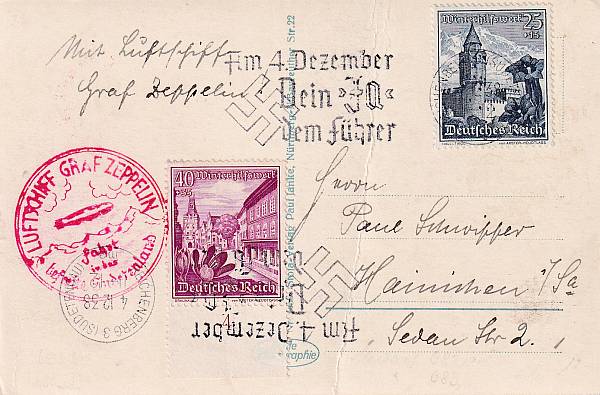 Mit Luftschiff
Graf Zeppelin!
Am 4. Dezember
Dein »Ja«
dem Führer
Winterhilfswerk 25
+15
Deutsches Reich
LUFTSCHIFF GRAF ZEPPELIN
Fahrt
in das
befreite Sudetenland
40 Winterhilfswerk
+35
Deutsches Reich
REICHENBERG 3 (SUDETENGAU)
4.12.38
Am 4. Dezember
Verlag Paul Janke, Nürnberg
Str. 22
Herrn
Paul Schwipper
Hainichen i/Sa
Sedan Str 2.